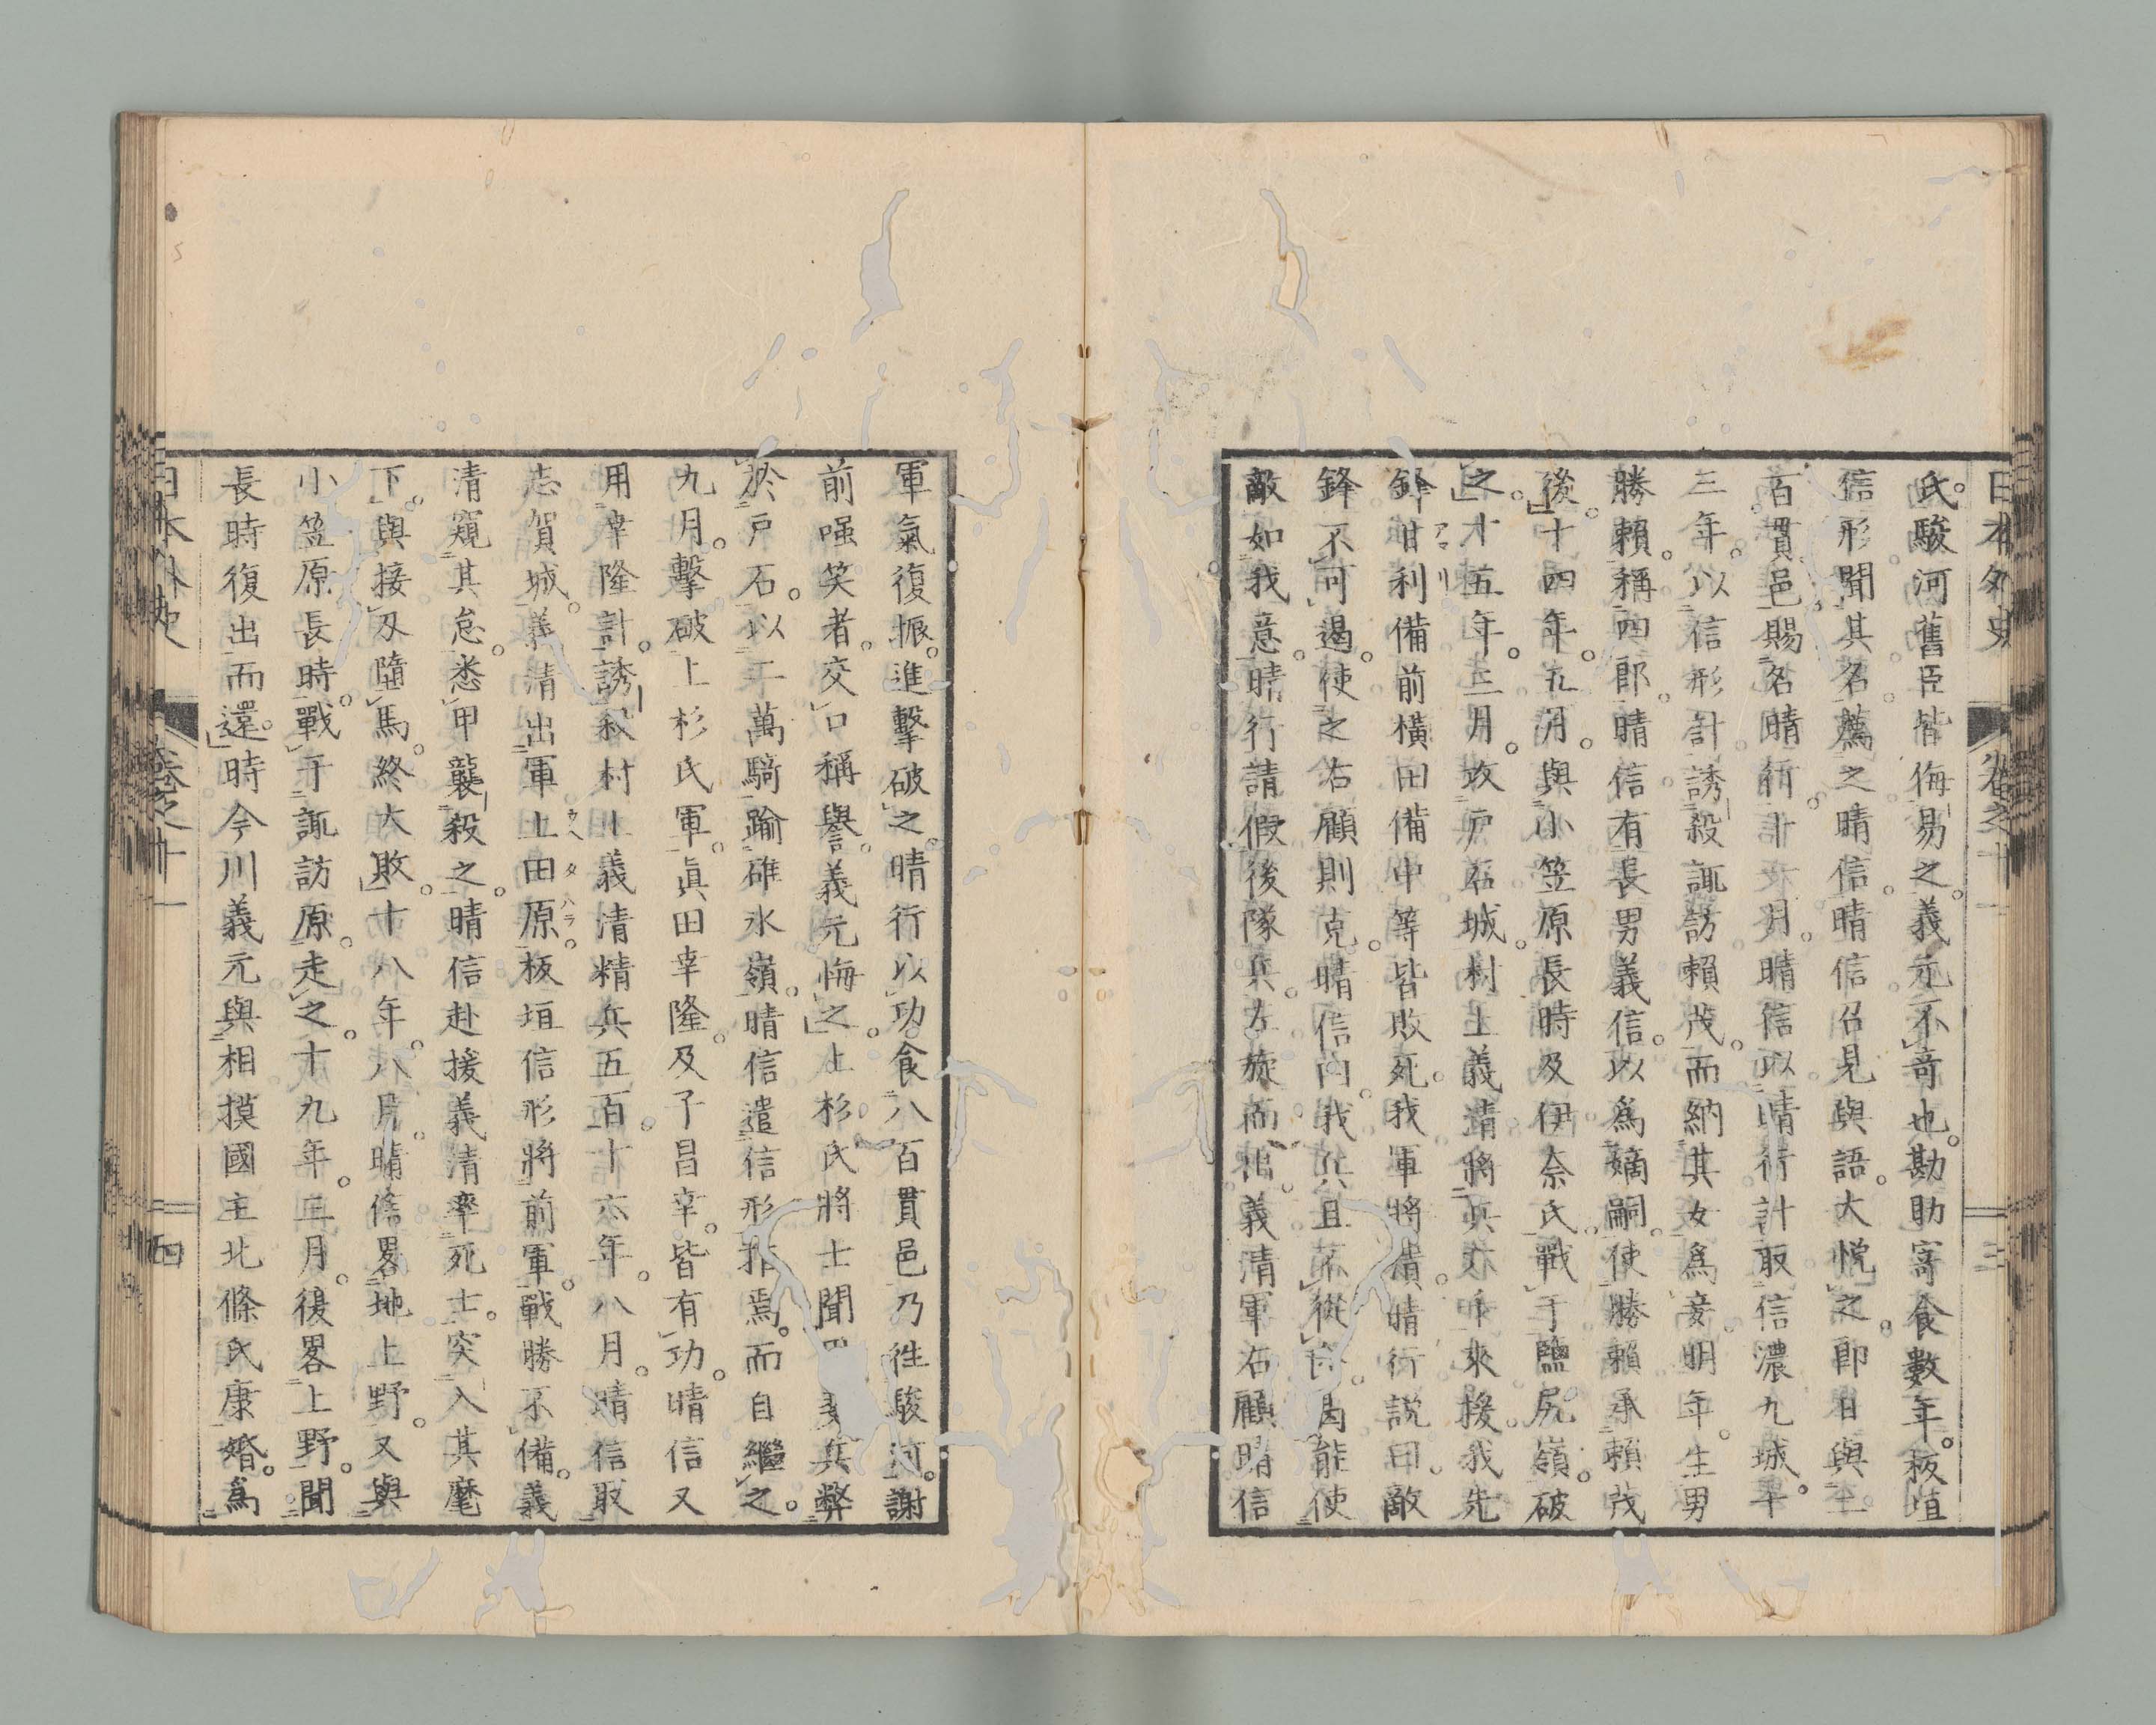 日本外史 卷之十一 三
氏。駿河舊臣皆侮易之。義元不奇也。勘助寄食數年。板垣
信形聞其名。薦之晴信。晴信召見與語。大悅之。卽日與
百貫邑。賜名晴行。十一月。晴信以晴行計取信濃九城。
三年。以信形計誘殺諏訪賴茂。而納其女爲妾。明年。生男
勝賴。稱四郎。晴信有長男義信。以爲嫡嗣。使勝賴承賴茂
後。十四年。五月。與小笠原長時及伊奈氏。戰于鹽尻嶺。破
之。十五年。三月。攻戸石城。村上義清將兵六千來援。我先
鋒甘利備前橫田備中等皆敗死。我軍將潰。晴行説曰。敵
鋒不可遏。使之右顧則克。晴信曰。我兵且不從令。曷能使
敵如我意。晴行請假後隊兵。左旋而出。義清軍右顧。晴信
軍氣復振。進擊破之。晴行以功食八百貫邑。乃徃駿河。謝
前嗤笑者。交口稱譽。義元悔之。上杉氏將士聞 兵弊
於戸石。以二萬騎踰碓氷嶺。晴信遣信形拒焉。而自繼之。
九月。擊破上杉氏軍。眞田幸隆。及子昌幸。皆有功。晴信又
用幸隆計。誘殺村上義清精兵五百。十六年。八月。晴信取
志賀城。義清出軍上田原。板垣信形將前軍。戰勝不備。義
清窺其怠。悉甲襲殺之。晴信赴援。義清率死士。突入其麾
下。與接刃墮馬。終大敗。十八年。八月。晴信畧地上野。又與
小笠原長時。戰于諏訪原。走之。十九年。二月。復畧上野。聞
長時復出而還。時今川義元與相摸國主北條氏康婚。爲
日本外史 卷之十一 四